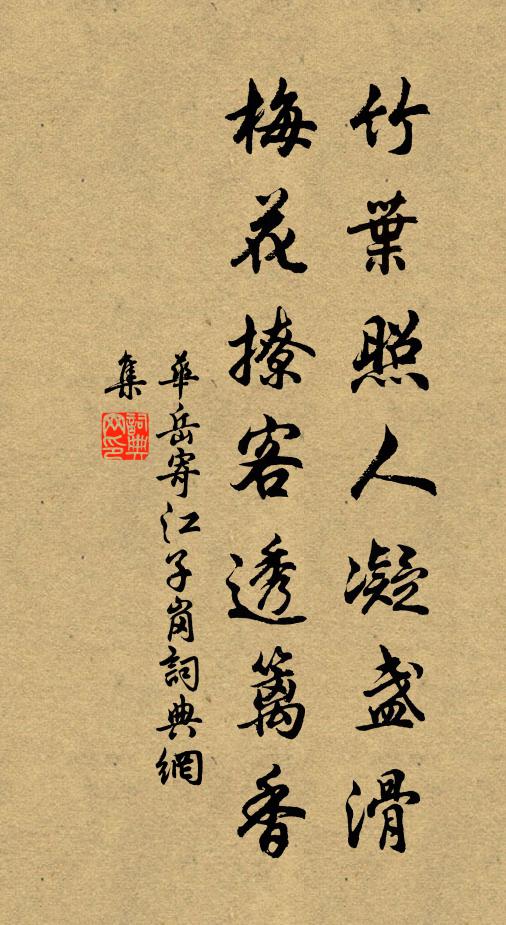 竹葉照人凝盞滑
梅花撩客透籬香
華岳寄江子崗詞典網
集
詞典
网印